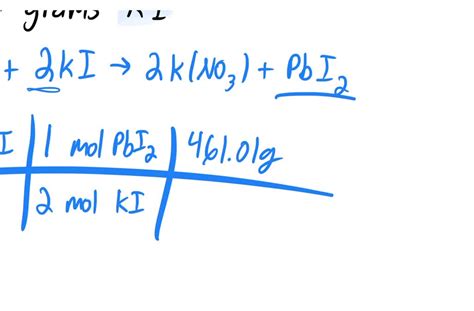 grams KI
+ 2KI → 2K(NO₃) + PbI₂
I | 1 mol PbI₂ | 461.01g
2 mol KI